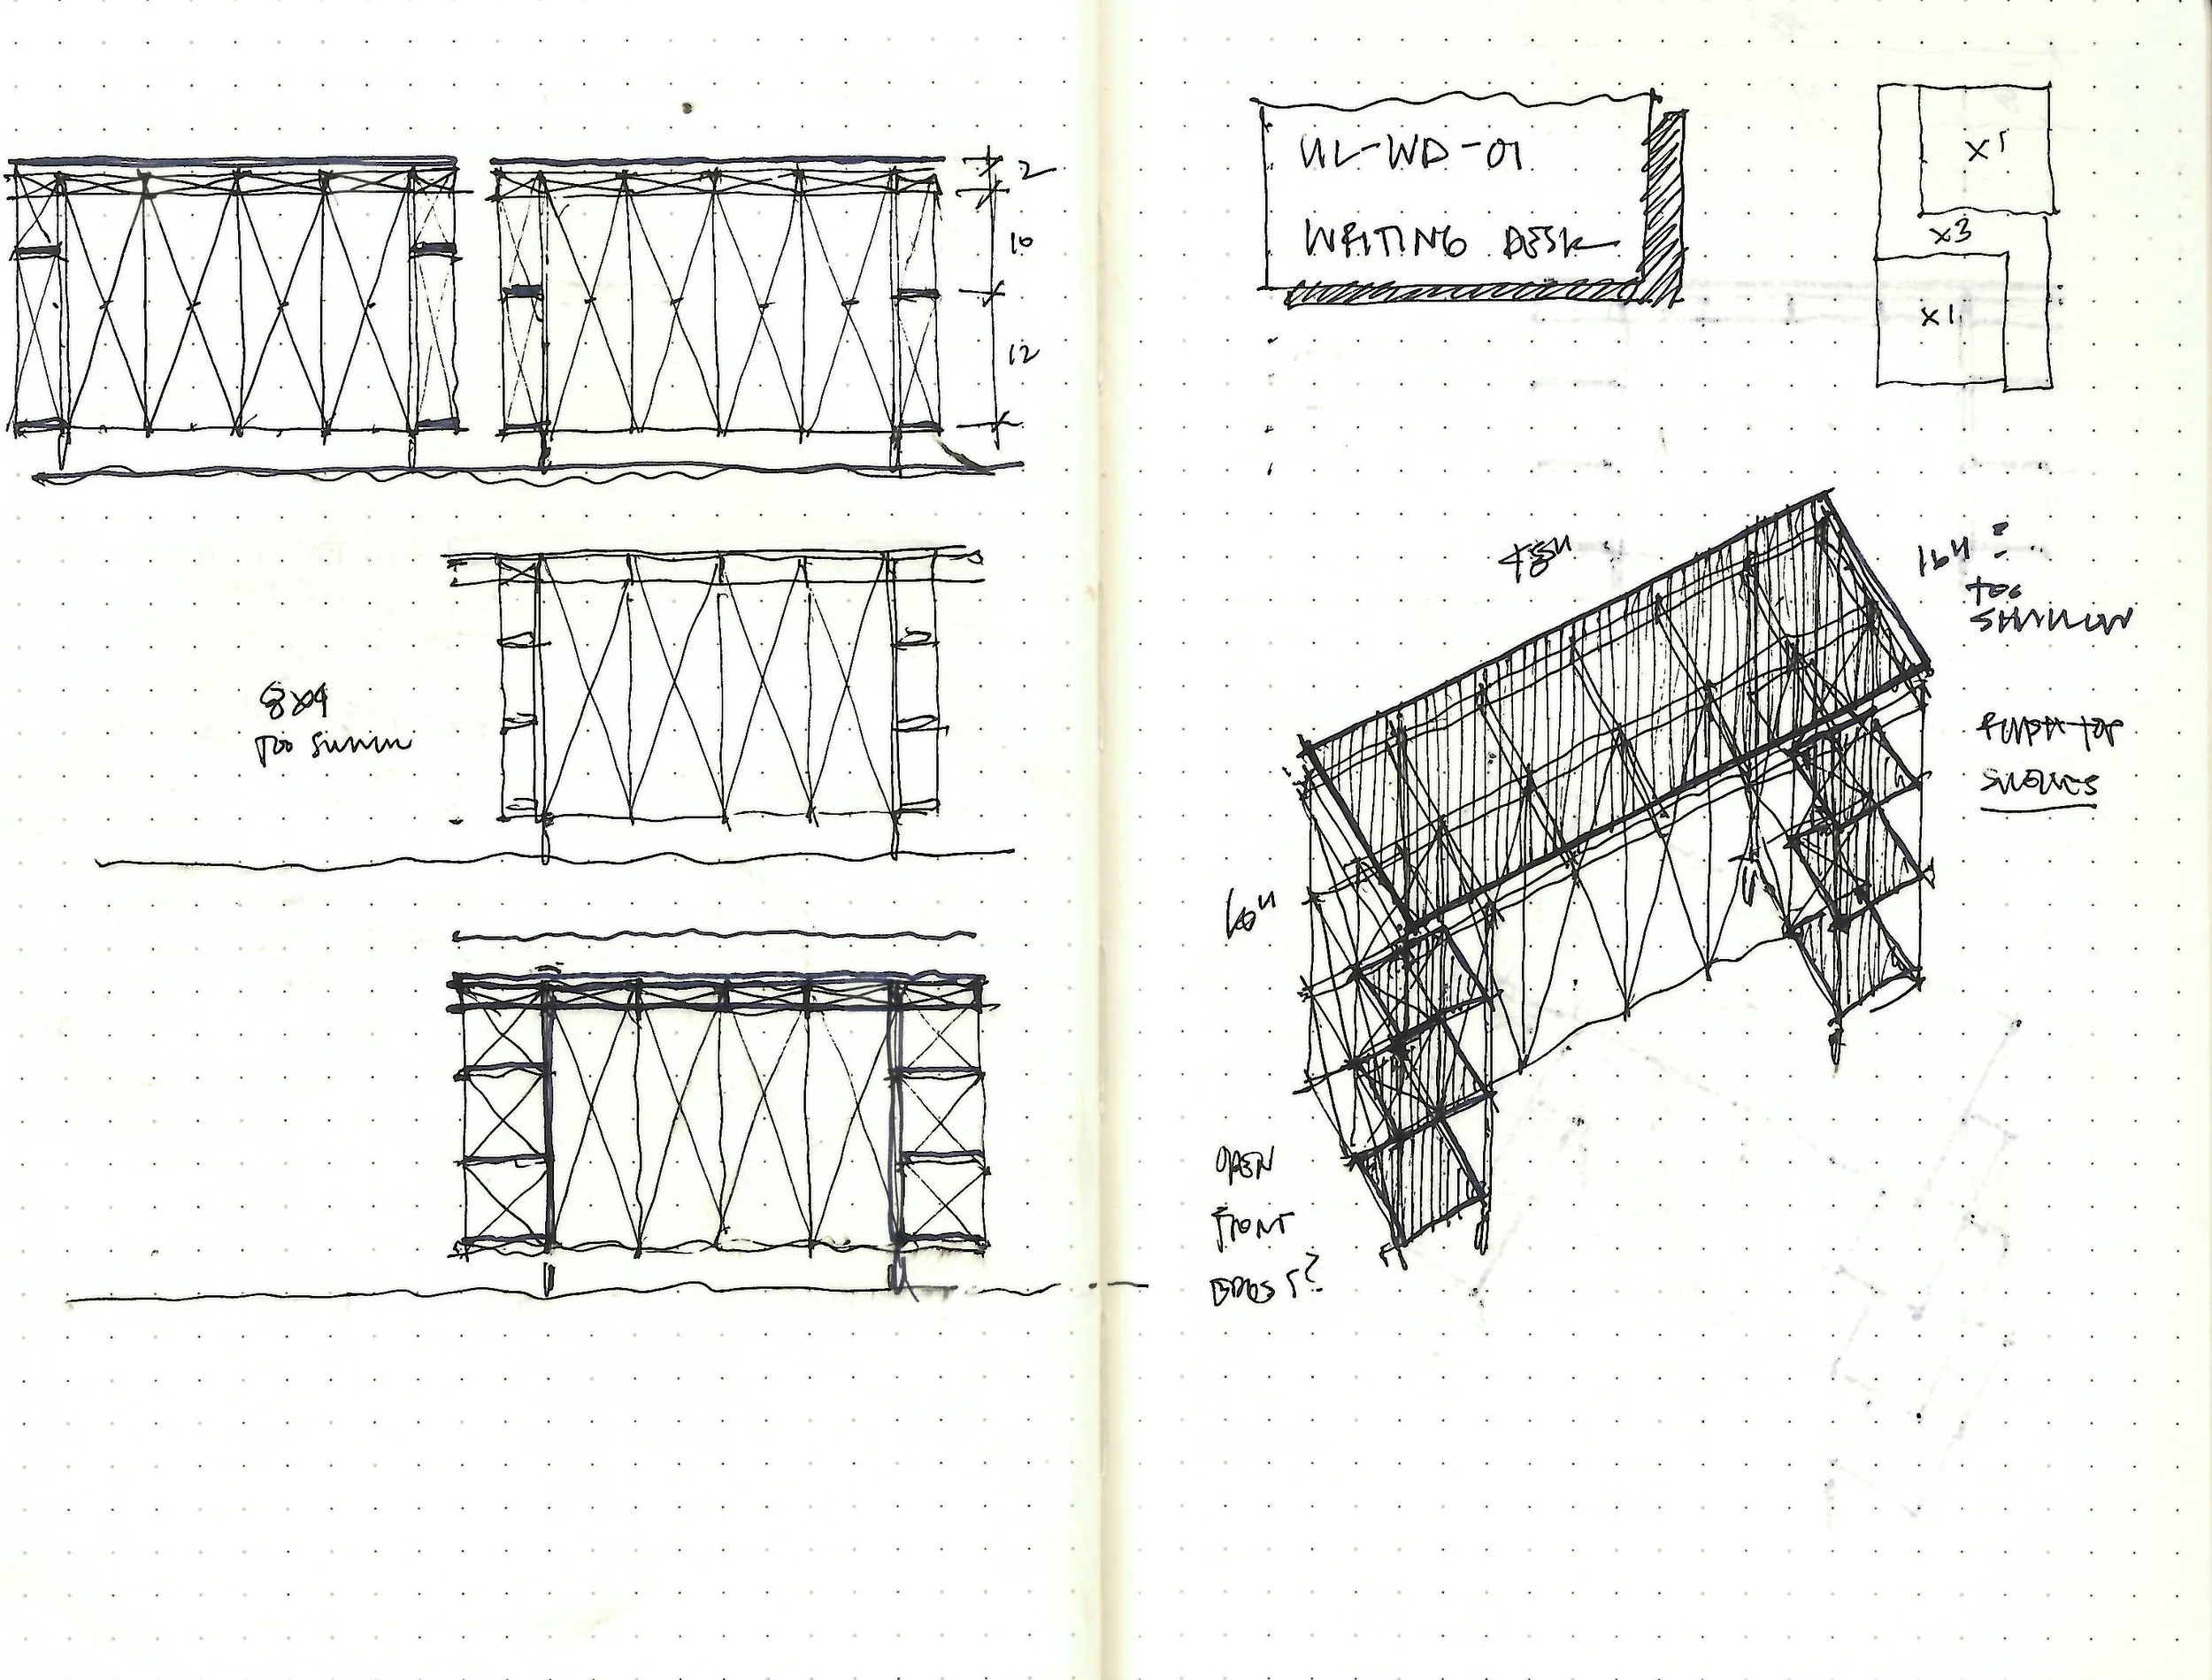 2
10
12
8x4
TOO
UL-WD-01
WRITING DESK
x1
x3
x1
16" ?
TOO
SHALLOW
TOP
SHELVES
OPEN
FRONT
EDGES?